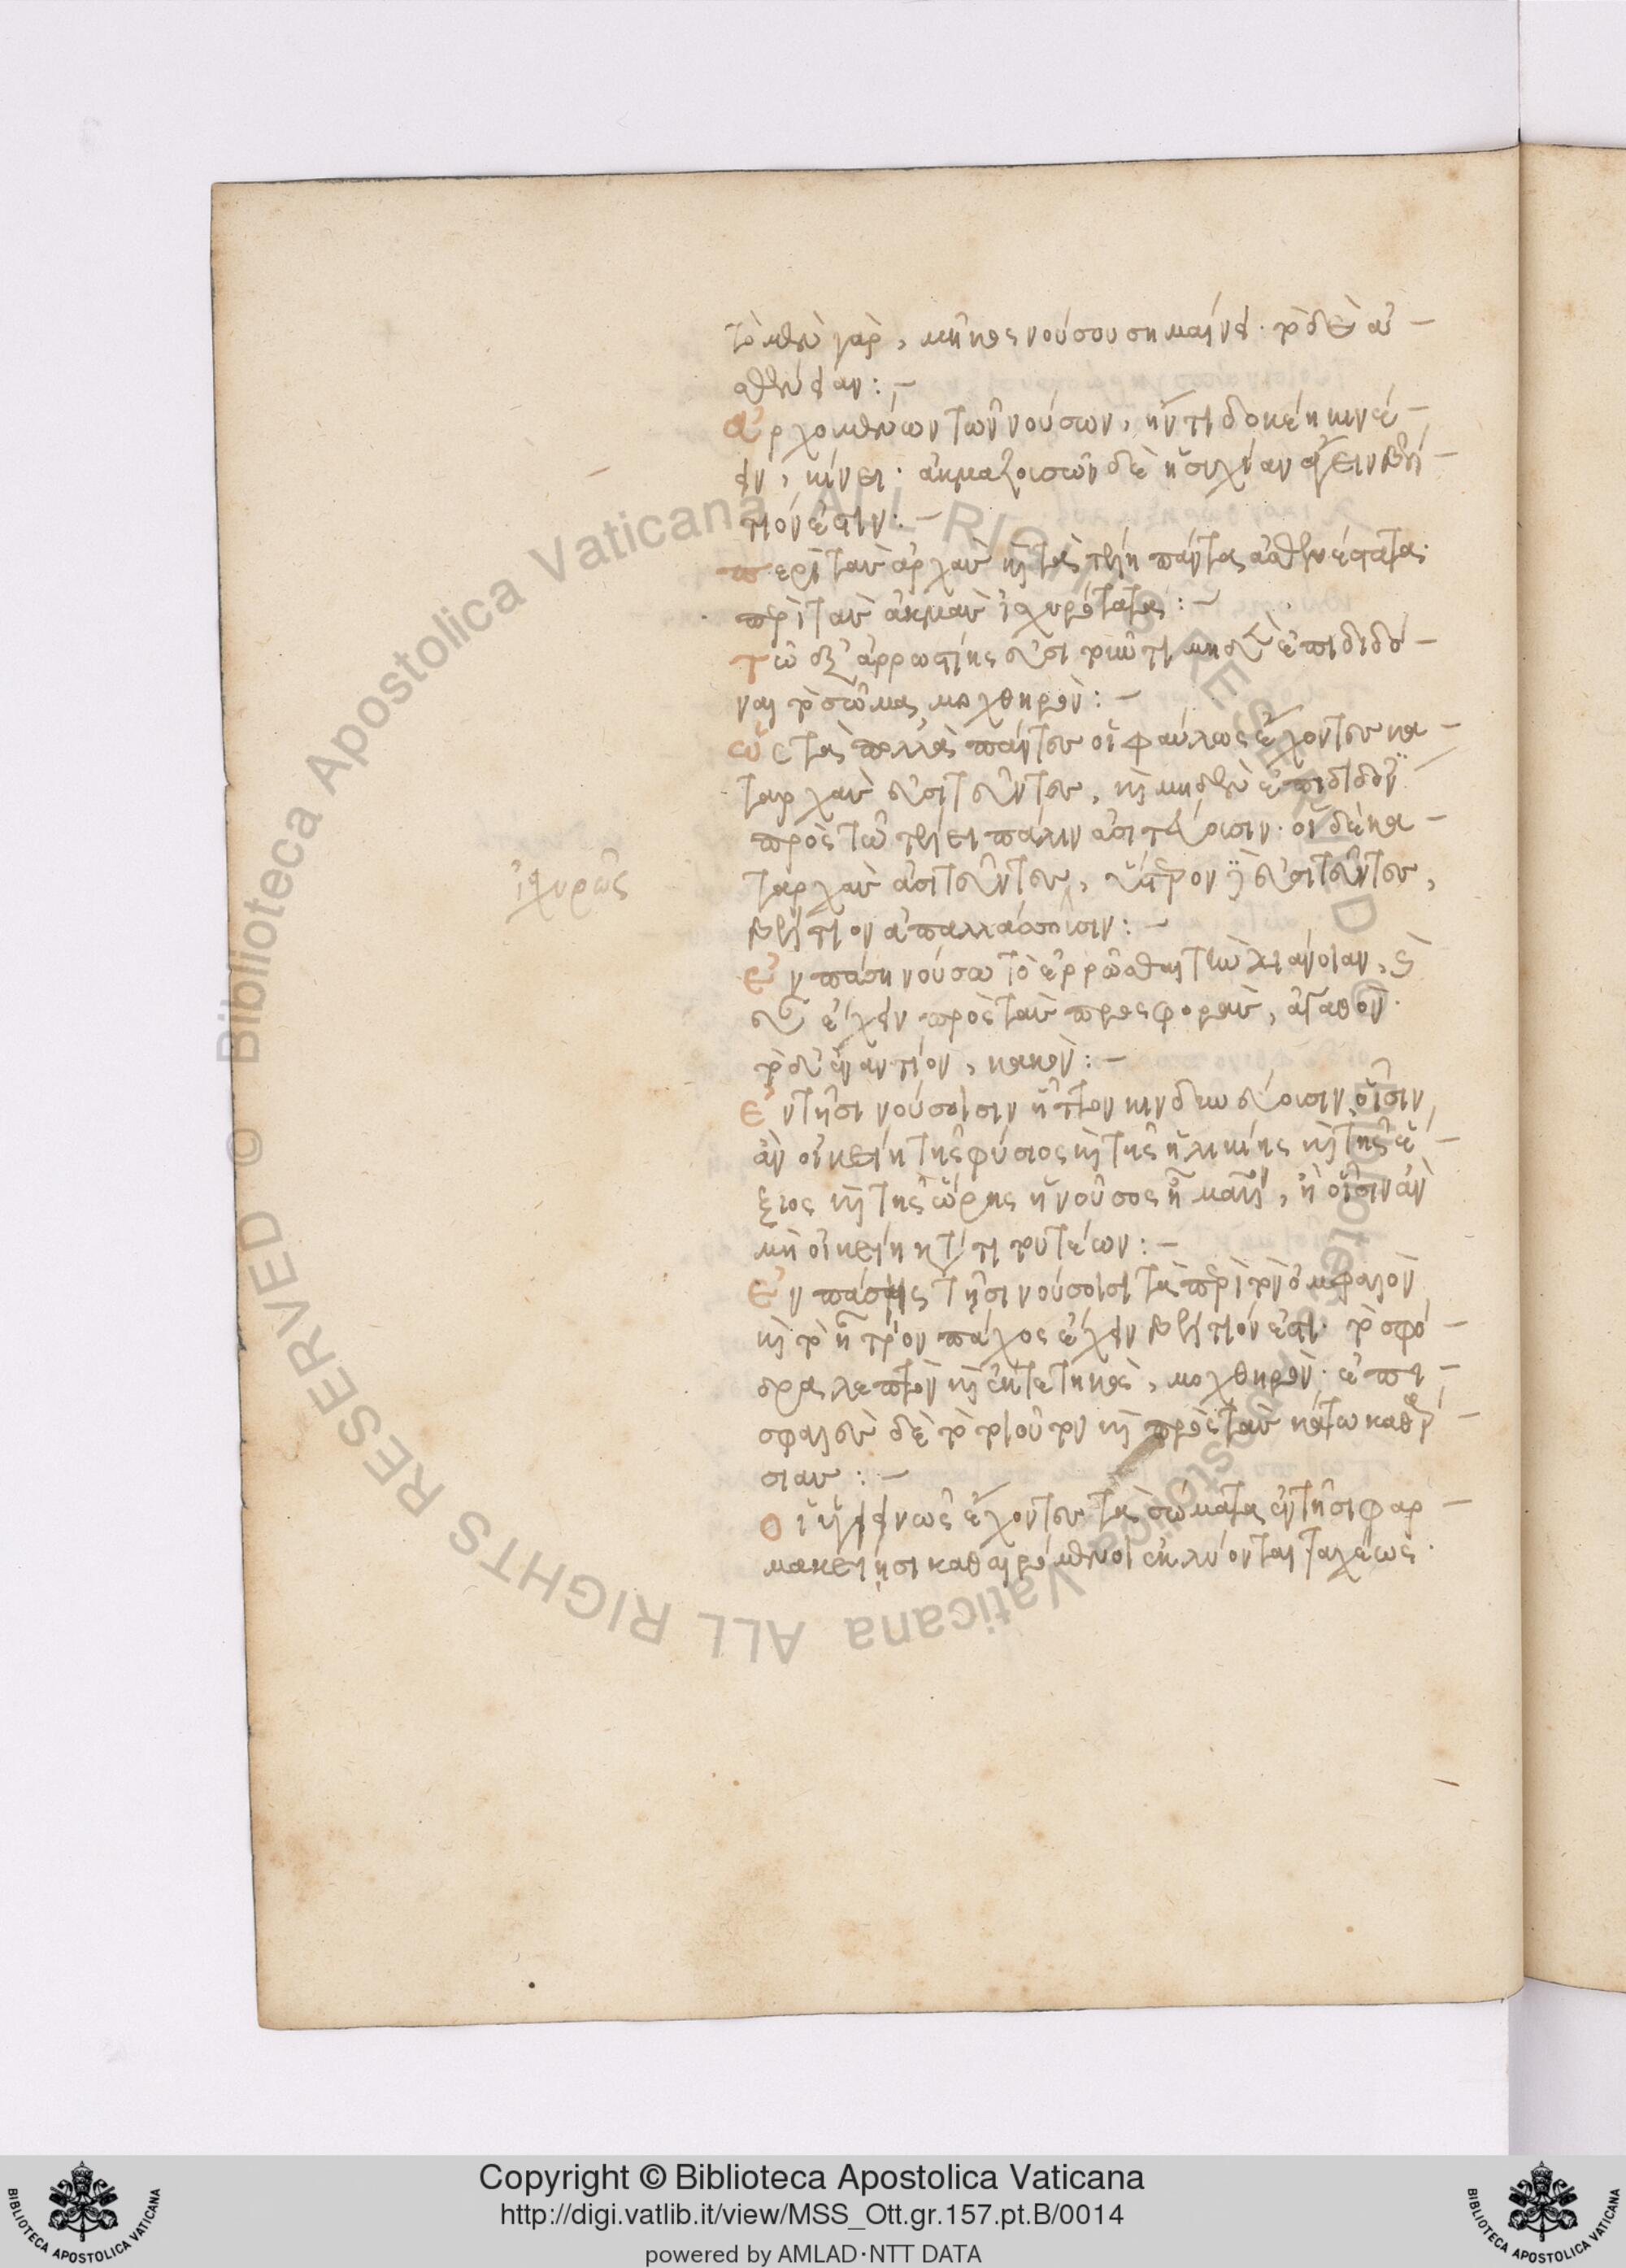 τὸ μὲν γὰρ, μῆκος νούσου σημαίνει. τὸ δὲ ἀ-
σθένειαν:-
Ἀρχομένων τῶν νούσων, ἤν τι δοκέη κινέ-
ειν, κίνει. ἀκμαζουσῶν δὲ ἡσυχίαν ἄγειν βέλ-
τιόν ἐστιν:-
περὶ τὰς ἀρχὰς καὶ τὰ τέλη πάντα ἀσθενέστατα.
περὶ τὰς ἀκμὰς ἰσχυρότατα:-
Τῷ ἐξ ἀρρωστίης εὐσιτέοντι μηδὲν ἐπιδιδό-
ναι τὸ σῶμα, μοχθηρόν:-
ὡς τὰ πολλὰ πάντες οἱ φαύλως ἔχοντες κα-
ταρχὰς εὐσιτεῦντες, καὶ μηδὲν ἐπιδιδόν
πρὸς τῷ τέλει πάλιν ἀσιτέουσιν. οἱ δὲ κα-
ταρχὰς ἀσιτεῦντες, ὕστερον δὲ εὐσιτεῦντες,
ἰσχυρῶς
βέλτιον ἀπαλλάσσουσιν:-
Ἐν πάση νούσω τὸ ἐρρῶσθαι τὴν διάνοιαν, καὶ
εὖ ἔχειν πρὸς τὰς προσφορὰς, ἀγαθόν.
τὸ δ' ἐναντίον, κακόν:-
Ἐν τῆσι νούσοισιν ἧττον κινδυνεύουσιν οἷσιν
ἂν οἰκείη τῆς φύσιος καὶ τῆς ἡλικίης καὶ τῆς ἕ-
ξιος καὶ τῆς ὥρης ἡ νοῦσος ᾖ μᾶλλον, ἢ οἷσιν ἂν
μὴ οἰκείη ᾖ κατά τι τουτέων:-
Ἐν πάσης τῆσι νούσοισι τὰ περὶ τὸν ὀμφαλὸν
καὶ τὸ ἦτρον πάχος ἔχειν βέλτιόν ἐστι. τὸ σφό-
δρα λεπτὸν καὶ ἐκτετηκὸς, μοχθηρόν. ἐπι-
σφαλὲς δὲ τὸ τοιοῦτον καὶ πρὸς τὰς κάτω καθαρ-
σίας:-
Οἱ ὑγιεινῶς ἔχοντες τὰ σώματα ἐν τῆσι φαρ-
μακείησι καθαιρόμενοι ἐκλύονται ταχέως.
Copyright © Biblioteca Apostolica Vaticana
http://digi.vatlib.it/view/MSS_Ott.gr.157.pt.B/0014
powered by AMLAD·NTT DATA
BIBLIOTECA APOSTOLICA VATICANA
BIBLIOTECA APOSTOLICA VATICANA
© Biblioteca Apostolica Vaticana ALL RIGHTS RESERVED
© Biblioteca Apostolica Vaticana ALL RIGHTS RESERVED